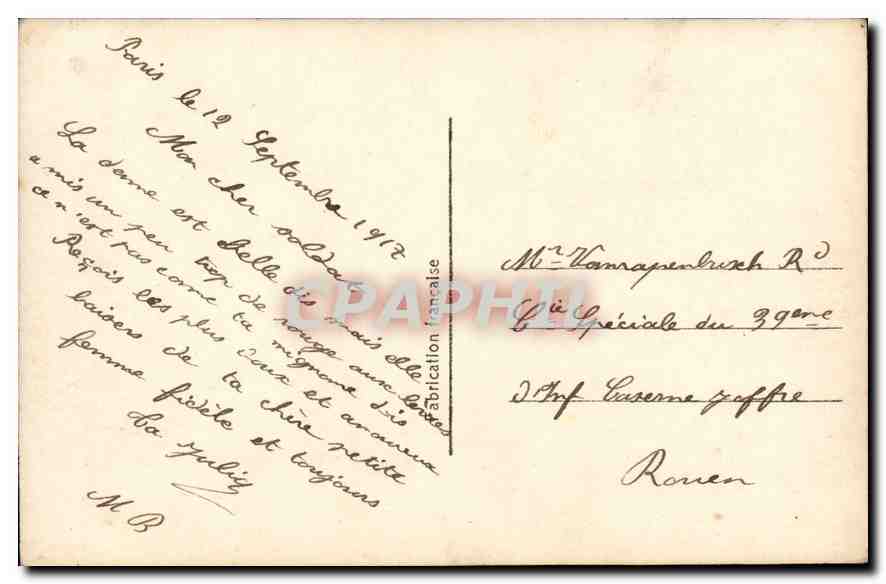 Paris le 12 Septembre 1917
Mon cher soldat
La dame est belle dis mais elle
a mis un peu trop de rouge aux lèvres
ce n'est pas come ta mignone dis
Reçois les plus doux et amoureux
baisers de ta chère petite
femme fidèle et toujours
Ta Julia
M B
Fabrication française
CPAPHIL
Mr Vanrapenbusch Rd
Cie Spéciale du 39eme
d'Inf Caserne Jaffre
Rouen